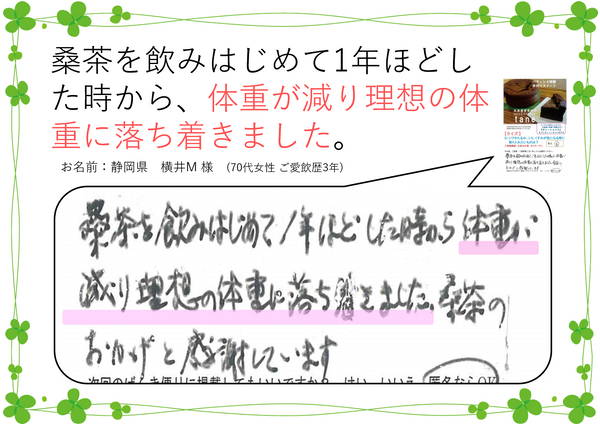 桑茶を飲みはじめて1年ほどし
た時から、体重が減り理想の体
重に落ち着きました。
お名前：静岡県 横井M 様 (70代女性 ご愛飲歴3年)
tane
桑茶を飲みはじめて1年ほどした時から体重が
減り理想の体重に落ち着きました。桑茶の
おかげと感謝しています
次回のはがき便りに掲載してもいいですか？ はい いいえ 匿名ならOK